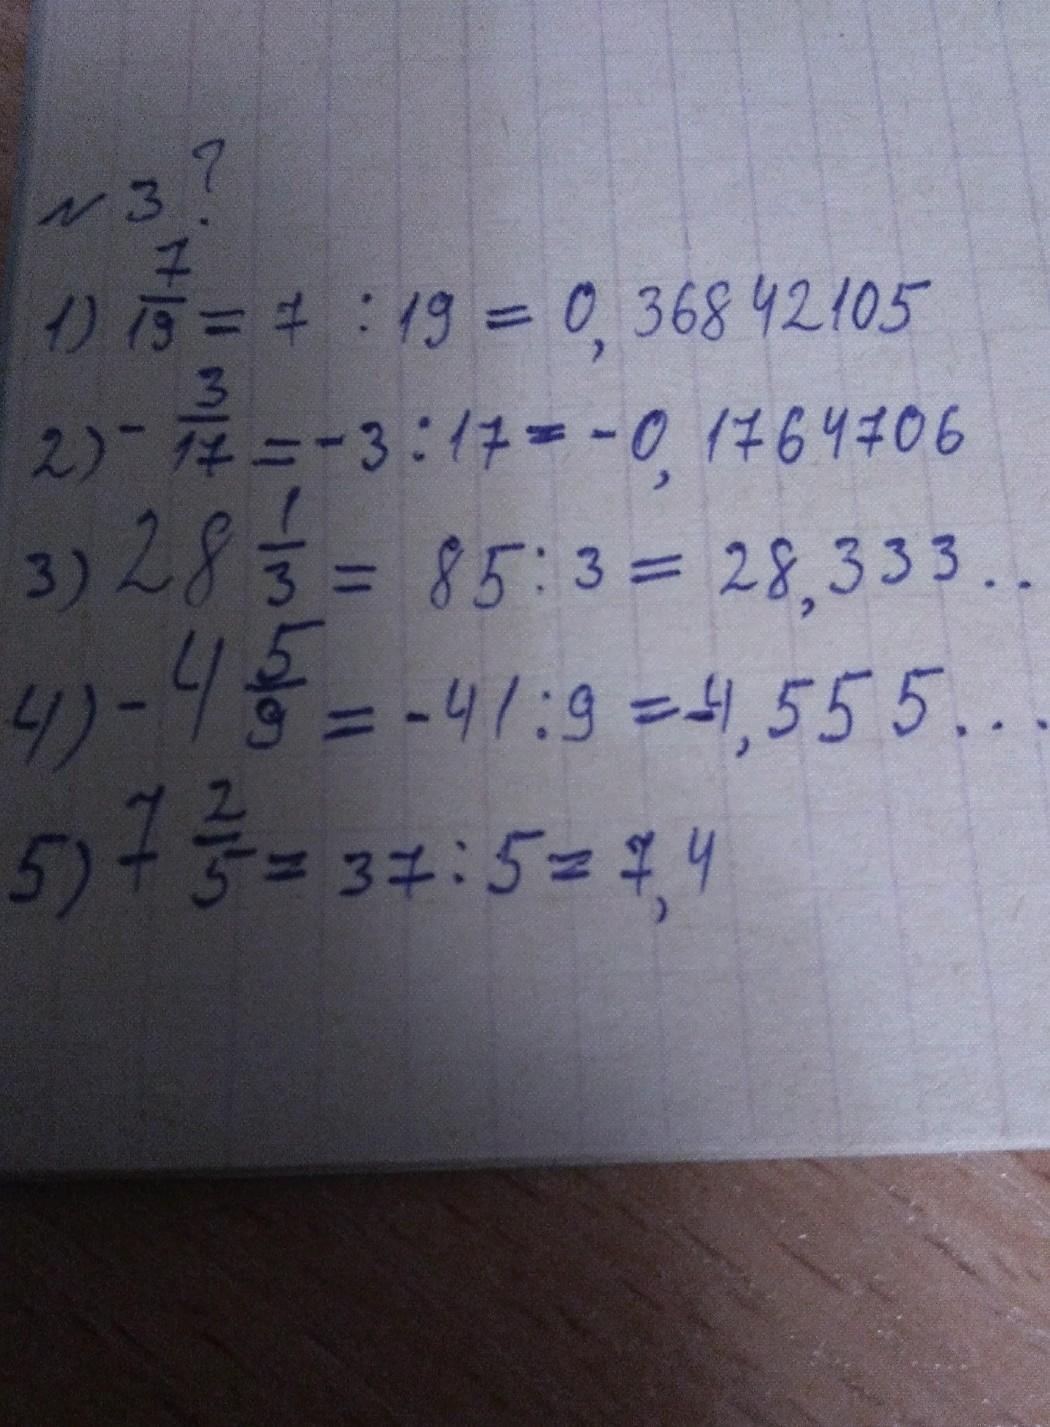 №3?
1) 7/19 = 7 : 19 = 0,36842105
2) - 3/17 = -3 : 17 = -0,1764706
3) 28 1/3 = 85 : 3 = 28,333...
4) - 4 5/9 = -41 : 9 = -4,555...
5) 7 2/5 = 37 : 5 = 7,4